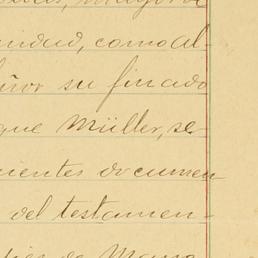 unidad, como al-
eñor su finado
que Müller, se
cientes documen
del testamen-
de Mayo